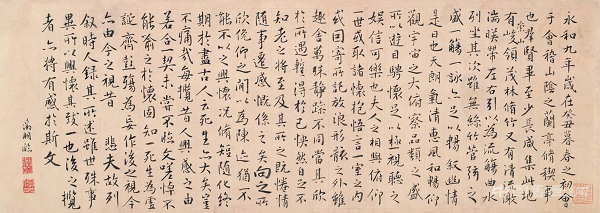 永和九年歲在癸丑暮春之初會
于會稽山陰之蘭亭脩稧事
也羣賢畢至少長咸集此地
有崇山峻領茂林脩竹又有清流激
湍暎帶左右引以為流觴曲水
列坐其次雖無絲竹管弦之
盛一觴一詠亦足以暢叙幽情
是日也天朗氣清惠風和暢仰
觀宇宙之大俯察品類之盛
所以遊目騁懷足以極視聽之
娛信可樂也夫人之相與俯仰
一世或取諸懷抱悟言一室之內
或因寄所託放浪形骸之外雖
趣舍萬殊靜躁不同當其欣
於所遇蹔得於己怏然自足不
知老之將至及其所之既惓情
隨事遷感慨係之矣向之所
欣俛仰之閒以為陳迹猶不
能不以之興懷況脩短隨化終
期於盡古人云死生亦大矣豈
不痛哉每攬昔人興感之由
若合一契未嘗不臨文嗟悼不
能喻之於懷固知一死生為虛
誕齊彭殤為妄作後之視今
亦由今之視昔 悲夫故列
叙時人錄其所述雖世殊事
異所以興懷其致一也後之攬
者亦將有感於斯文
臨